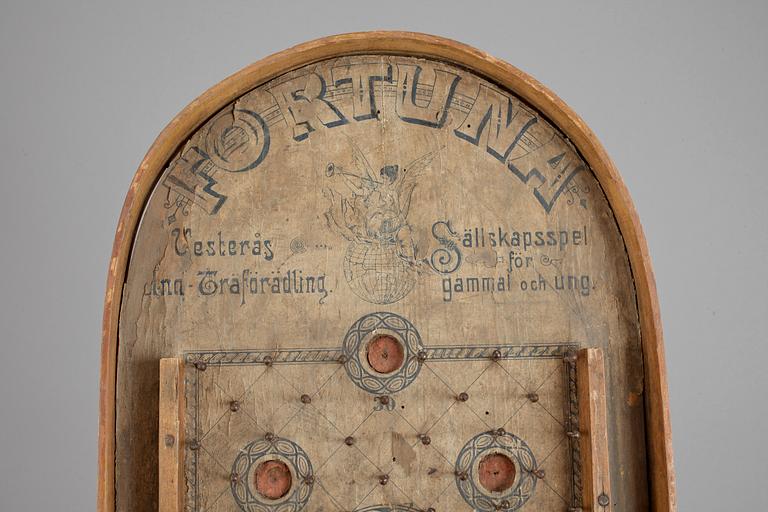 FORTUNA
Vesterås
Träförädling.
Sällskapsspel
för
gammal och ung.
30